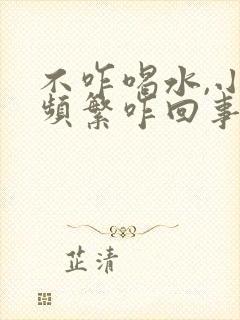 不咋喝水,小
频繁咋回事
芷清